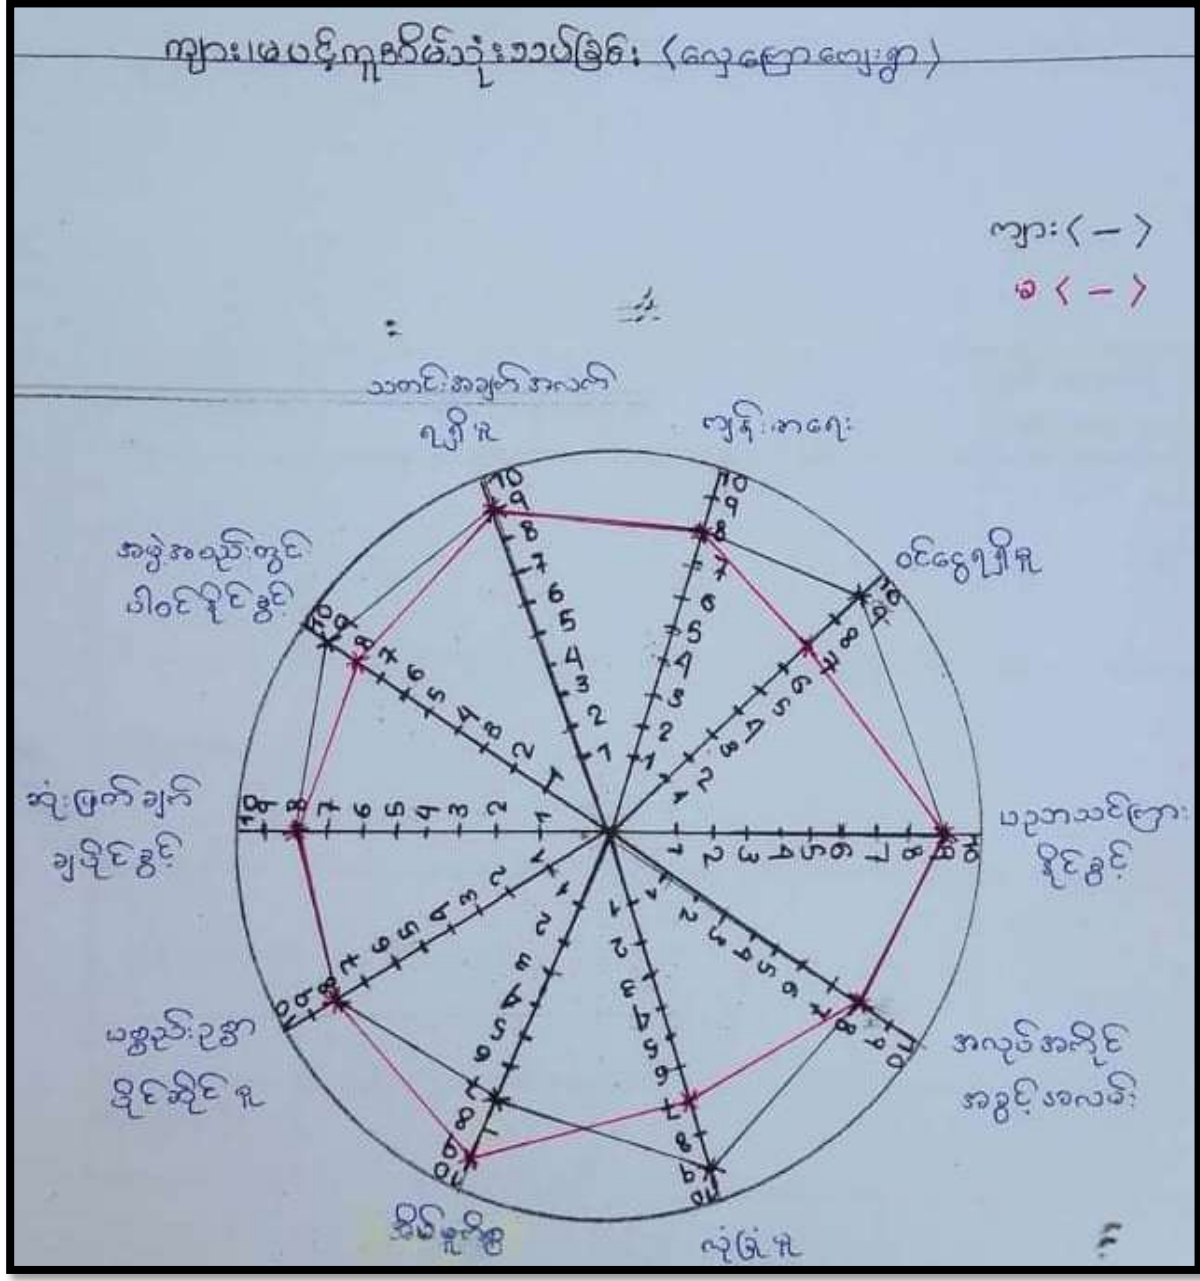 ကျား၊မပင့်ကူအိမ်သုံးသပ်ခြင်း (လှေကြောကျေးရွာ)
ကျား (—)
မ (—)
သတင်းအချက်အလက်
ရရှိမှု
ကျန်းမာရေး
ဝင်ငွေရရှိမှု
ပညာသင်ကြား
နိုင်ခွင့်
အလုပ်အကိုင်
အခွင့်အလမ်း
လုံခြုံမှု
အိမ်မှုကိစ္စ
ပစ္စည်းဥစ္စာ
ပိုင်ဆိုင်မှု
ဆုံးဖြတ်ချက်
ချနိုင်ခွင့်
အဖွဲ့အစည်းတွင်
ပါဝင်နိုင်ခွင့်
1 2 3 4 5 6 7 8 9 10
1 2 3 4 5 6 7 8 9 10
1 2 3 4 5 6 7 8 9 10
1 2 3 4 5 6 7 8 9 10
1 2 3 4 5 6 7 8 9 10
1 2 3 4 5 6 7 8 9 10
1 2 3 4 5 6 7 8 9 10
1 2 3 4 5 6 7 8 9 10
1 2 3 4 5 6 7 8 9 10
1 2 3 4 5 6 7 8 9 10